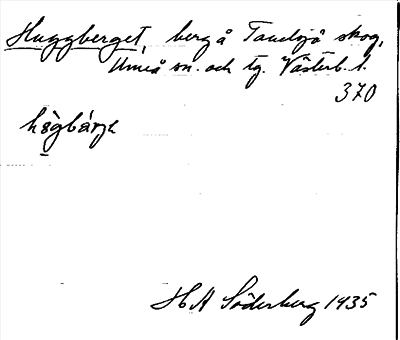 Huggberget, berg å Tavelsjö skog,
Umeå sn. och tg. Västerb. l.
370
hògbárje
H A Söderberg 1935